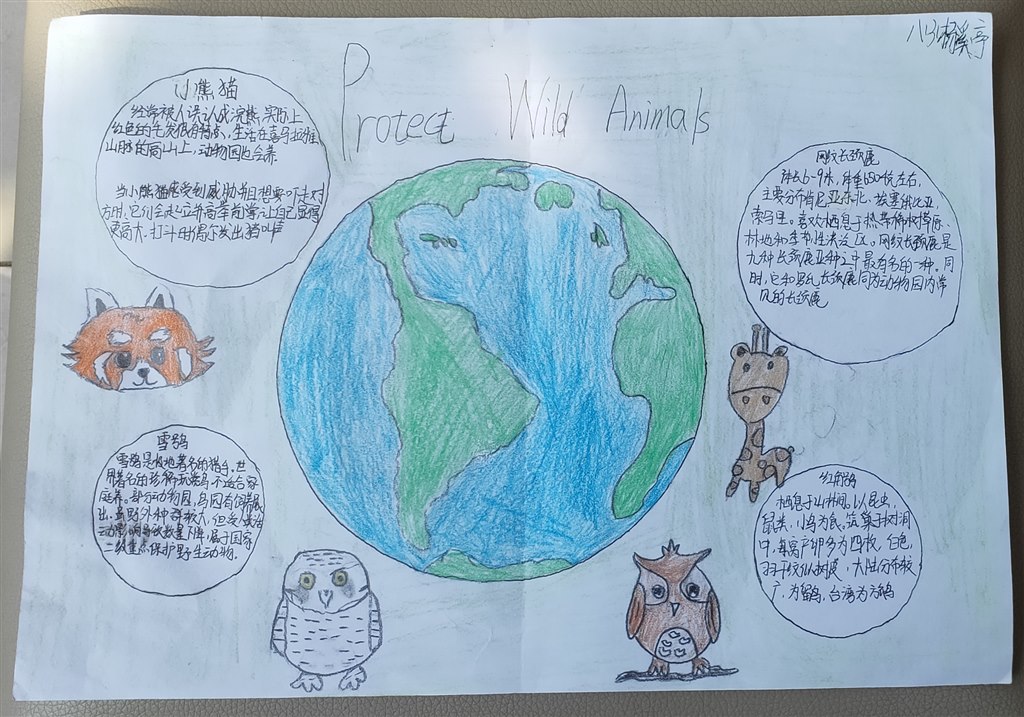 Protect Wild Animals
八3
小熊猫
经常被人误认成浣熊,实际上
红色的毛发很有特点,生活在喜马拉雅
山脉的高山上,动物园也会养
当小熊猫感受到威胁并且想要吓走对
方时,它们会起立并高举前掌让自己显得
更高大,打斗时偶尔发出猫叫声
网纹长颈鹿
体长6-9米,体重
主要分布肯尼亚东北、埃塞俄比亚,
索马里。喜欢栖息于热带稀树草原、
林地和季节性泛区。网纹长颈鹿是
九种长颈鹿亚种之中最有名的一种,同
时,它和长颈鹿同为动物园内常
见的长颈鹿
雪鸮
雪鸮是极地著名的猎手,世
界著名的珍稀玩赏鸟不适合家
庭养。部分动物园,鸟园有饲养展
出,虽野外种群较大,但受人类活
动影响导致数量下降,属于国家
二级重点保护野生动物。
红角鸮
栖息于山林间。以昆虫,
鼠类,小鸟为食。筑巢于树洞
中,每窝产卵多为四枚,白色,
羽纹似树皮,大陆分布较
广,为留鸟,台湾为